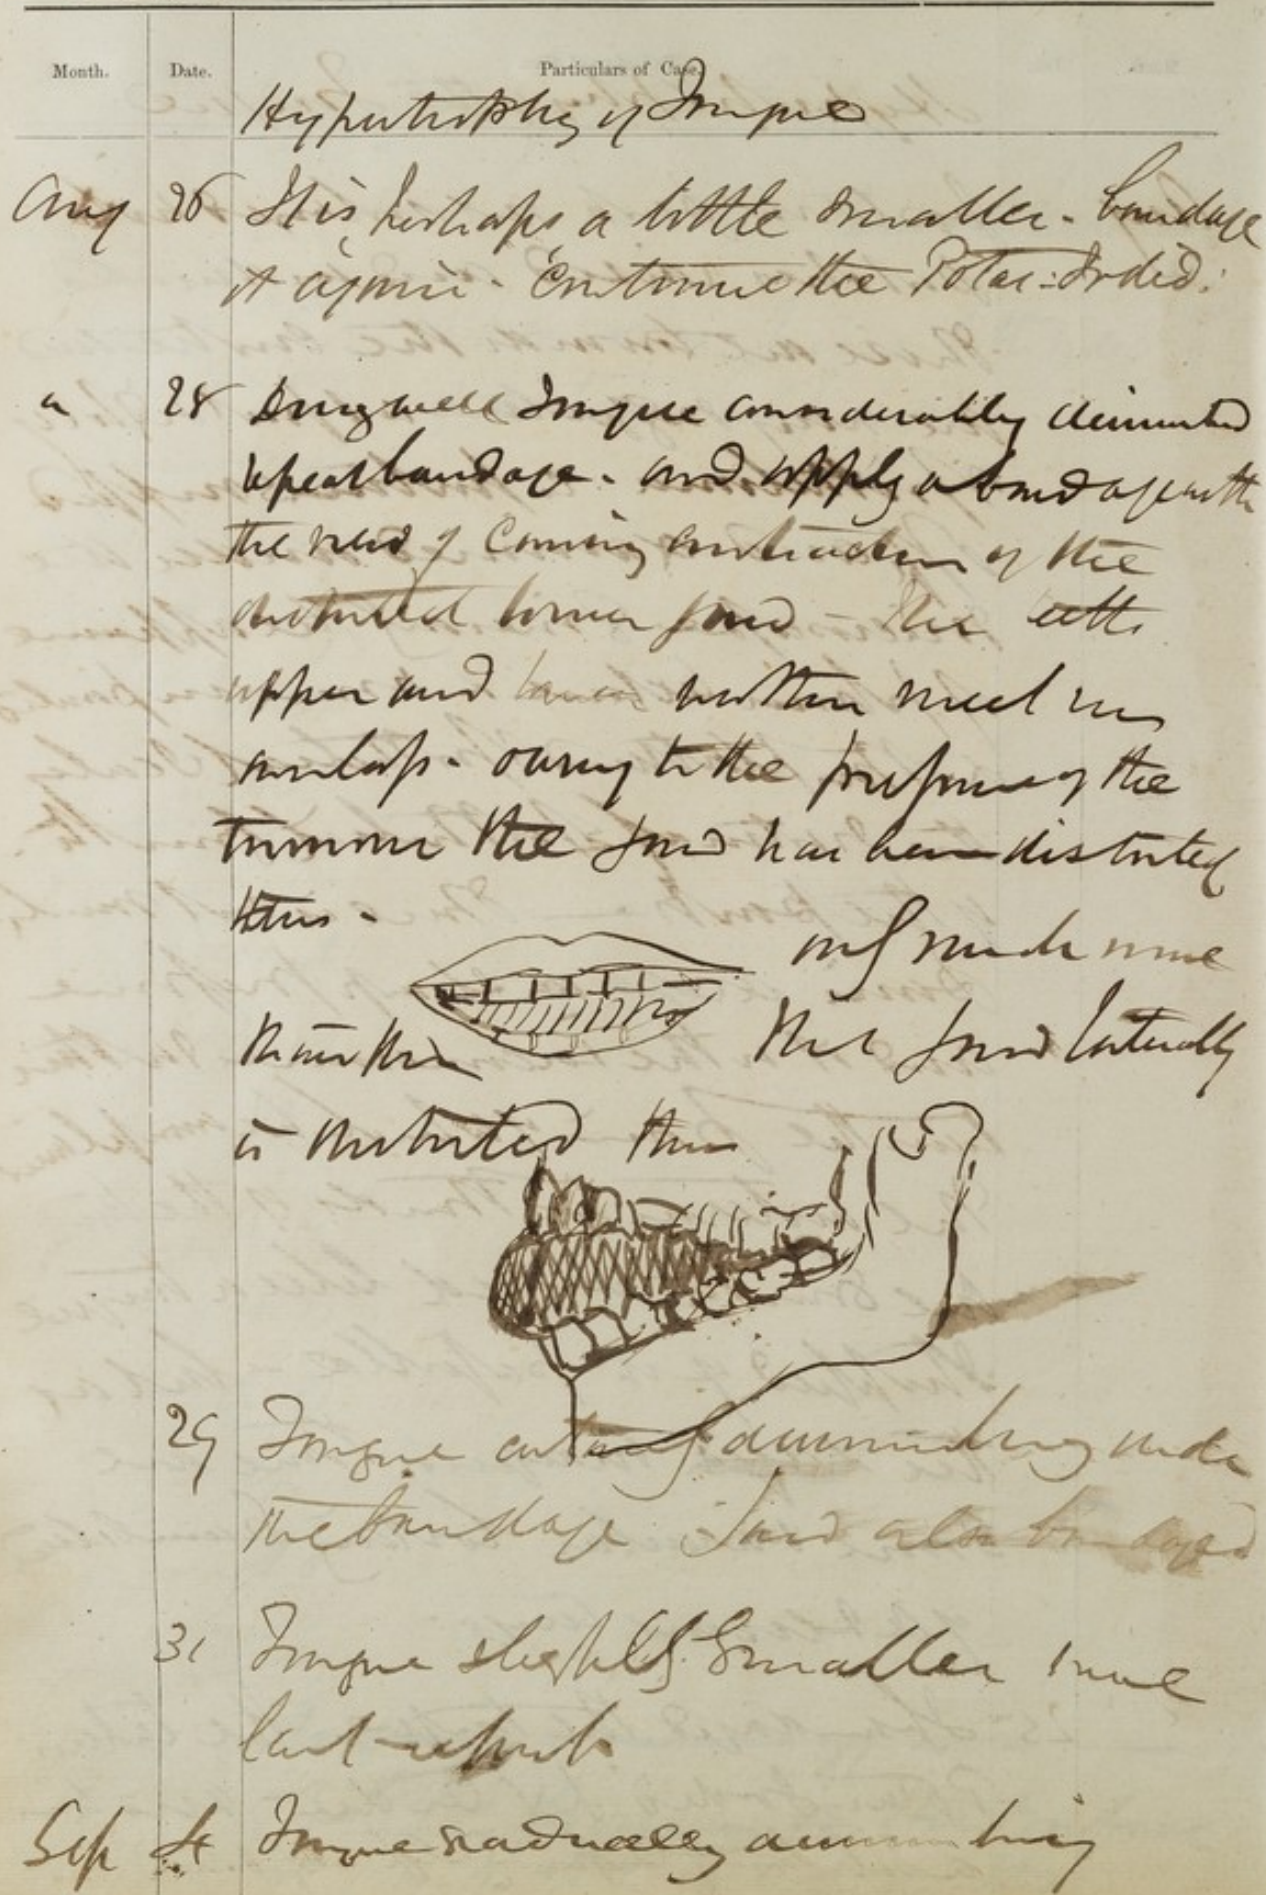 Month. Date. Particulars of Case.
Hypertrophy of Tongue
Aug 26 It is perhaps a little smaller - bandage
it again - Continue the Potas: Iodid:
" 28 Doing well Tongue considerably
repeat bandage - and apply a bandage with
the view of causing contraction of the
distorted lower jaw - The teeth
upper and lower neither meet nor
overlap - owing to the pressure of the
tumour the jaw has been distorted
thus -
and much more
than this The jaw laterally
is distorted thus
29 Tongue diminishing under
the bandage Jaw also bandaged
31 Tongue slightly smaller since
last report
Sep Tongue gradually diminishing